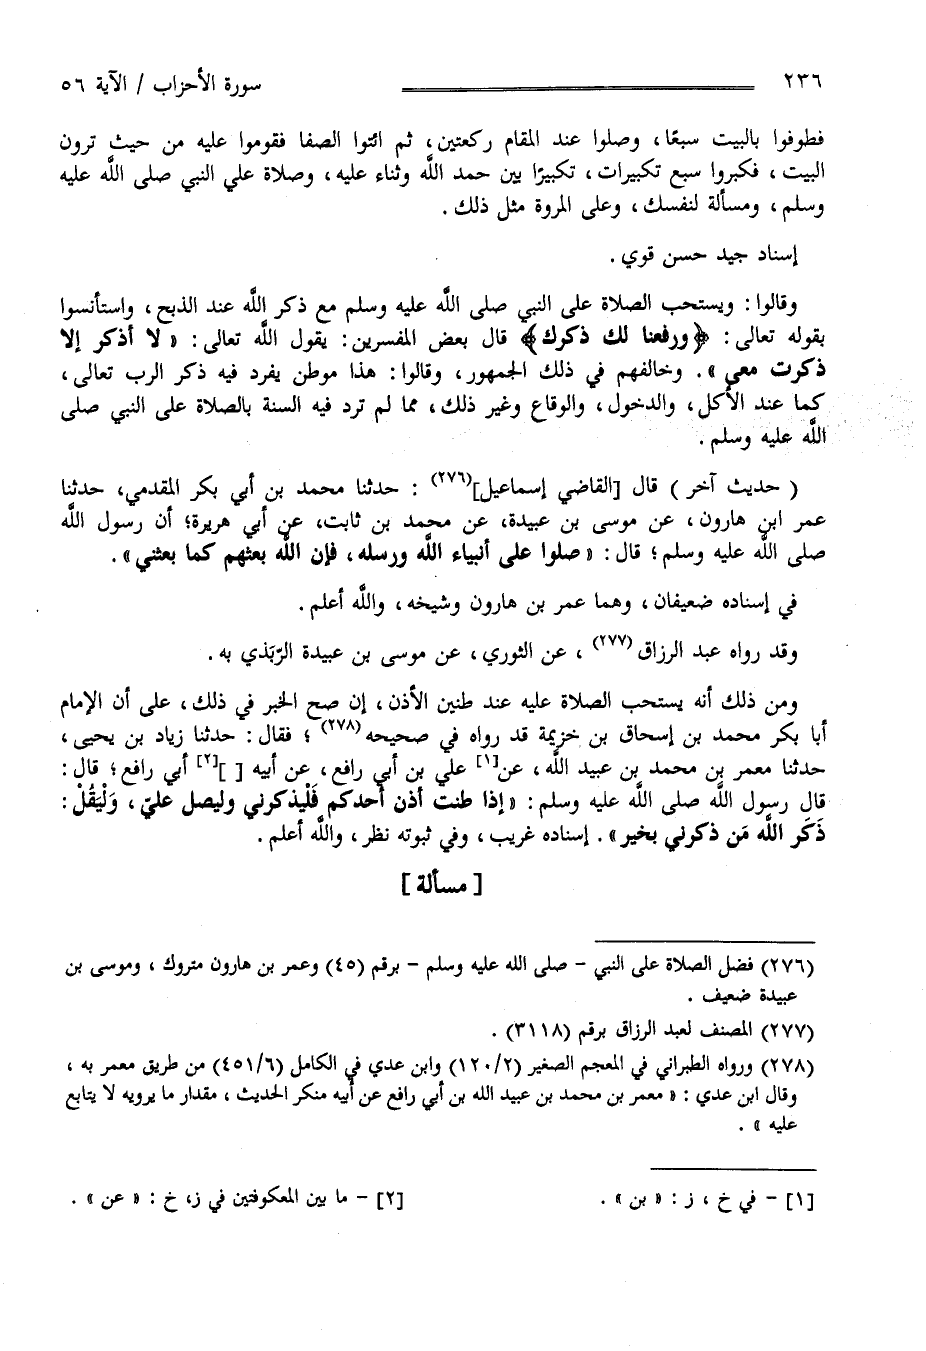 ٢٣٦ سورة الأحزاب / الآية ٥٦
فطوفوا بالبيت سبعًا ، وصلوا عند المقام ركعتين ، ثم ائتوا الصفا فقوموا عليه من حيث ترون
البيت ، فكبروا سبع تكبيرات ، تكبيرًا بين حمد الله وثناء عليه ، وصلاة علي النبي صلى الله عليه
وسلم ، ومسألة لنفسك ، وعلى المروة مثل ذلك .
إسناد جيد حسن قوي .
وقالوا : ويستحب الصلاة على النبي صلى الله عليه وسلم مع ذكر الله عند الذبح ، واستأنسوا
بقوله تعالى : ﴿ورفعنا لك ذكرك﴾ قال بعض المفسرين : يقول الله تعالى : « لا أذكر إلا
ذكرت معي » . وخالفهم في ذلك الجمهور ، وقالوا : هذا موطن يفرد فيه ذكر الرب تعالى ،
كما عند الأكل ، والدخول ، والوقاع وغير ذلك ، مما لم ترد فيه السنة بالصلاة على النبي صلى
الله عليه وسلم .
( حديث آخر ) قال [القاضي إسماعيل](٢٧٦) : حدثنا محمد بن أبي بكر المقدمي، حدثنا
عمر ابن هارون ، عن موسى بن عبيدة، عن محمد بن ثابت، عن أبي هريرة؛ أن رسول الله
صلى الله عليه وسلم ؛ قال : « صلوا على أنبياء الله ورسله ، فإن الله بعثهم كما بعثني » .
في إسناده ضعيفان ، وهما عمر بن هارون وشيخه ، والله أعلم .
وقد رواه عبد الرزاق (٢٧٧) ، عن الثوري ، عن موسى بن عبيدة الرَّبَذي به .
ومن ذلك أنه يستحب الصلاة عليه عند طنين الأذن ، إن صح الخبر في ذلك ، على أن الإمام
أبا بكر محمد بن إسحاق بن خزيمة قد رواه في صحيحه (٢٧٨) ؛ فقال : حدثنا زياد بن يحيى ،
حدثنا معمر بن محمد بن عبيد الله ، عن[١] علي بن أبي رافع ، عن أبيه [ ][٢] أبي رافع ؛ قال :
قال رسول الله صلى الله عليه وسلم : « إذا طنت أذن أحدكم فَلْيذكرني وليصل عليّ ، وَلْيَقُلْ :
ذَكَر الله مَن ذكرني بخير » . إسناده غريب ، وفي ثبوته نظر ، والله أعلم .
[ مسألة ]
(٢٧٦) فضل الصلاة على النبي – صلى الله عليه وسلم – برقم (٤٥) وعمر بن هارون متروك ، وموسى بن
عبيدة ضعيف .
(٢٧٧) المصنف لعبد الرزاق برقم (٣١١٨) .
(٢٧٨) ورواه الطبراني في المعجم الصغير (١٢٠/٢) وابن عدي في الكامل (٤٥١/٦) من طريق معمر به ،
وقال ابن عدي : « معمر بن محمد بن عبيد الله بن أبي رافع عن أبيه منكر الحديث ، مقدار ما يرويه لا يتابع
عليه » .
[١] – في خ ، ز : « بن » . [٢] – ما بين المعكوفتين في ز، خ : « عن » .